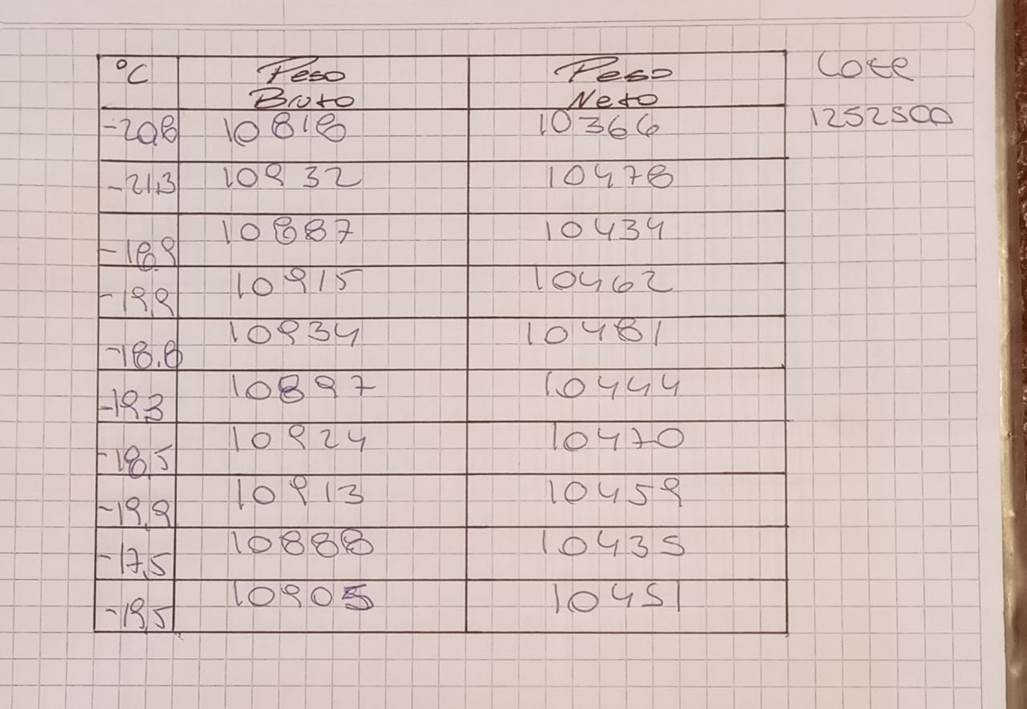 °C Peso Bruto Peso Neto Lote
-20,8 10818 10366 1252500
-21,3 10932 10478
-18,9 10887 10434
-19,9 10915 10462
-18.8 10934 10481
-19,3 10897 10444
-18,5 10924 10470
-19,9 10913 10459
-17,5 10888 10435
-19,5 10905 10451